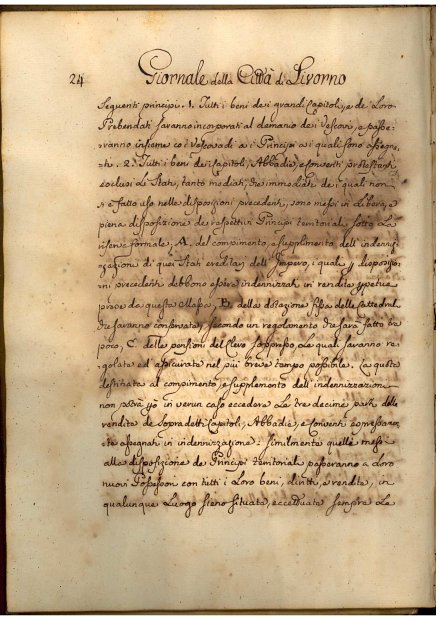 24
Giornale della Città di Livorno
Sequenti principj. 1. Tutti i beni dei grandi Capitoli, e de Loro
Prebendati saranno incorporati al demanio dei Vescovi, e passe=
ranno insieme co i Vescovadi a i Principi a i quali sono assegna=
ti. 2. Tutti i beni dei Capitoli, Abbadie, e Conventi
di Stati, tanto mediati, che immediati de i quali non
si è fatto uso nelle disposizioni precedenti, sono messi in libera, e
piena disposizione de rispettivi Principi territoriali sotto la
riserva formale, A, del compimento, e supplimento dell'indenniz=
zazione di quei Stati ereditarj dell'Impero, i quali p disposizio=
ni precedenti debbono essere indennizzati in rendite perpetue
prese da questa Massa, B, della dotazione fissa delle Cattedrali
che saranno conservate, secondo un regolamento che sarà fatto tra
poco, C, delle pensioni del Clero soppresso, Le quali saranno re=
golate ed assicurate nel più breve tempo possibile. La quota
destinata al compimento, e supplemento dell'indennizzazione
non potrà in verun caso eccedere Le tre decime parti delle
rendite de sopradetti Capitoli, Abbadie, e Conventi espressamen=
te assegnati in indennizzazione: similmente quelle messe
alla disposizione de Principi territoriali passeranno a Loro
nuovi Possessori con tutti i Loro beni, diritti, e rendite, in
qualunque Luogo sieno situate, eccettuate sempre Le